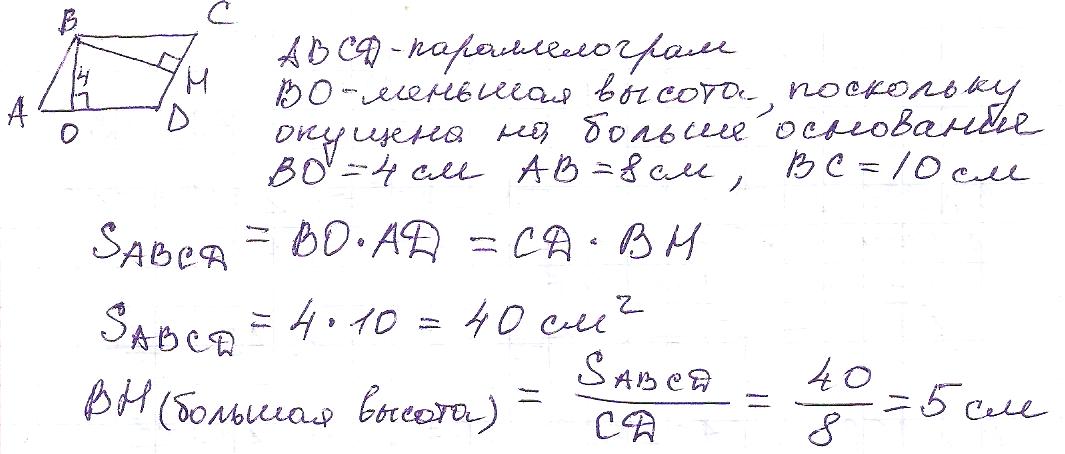 B C
4
H
A O D
ABCD-параллелограм
BO-меньшая высота, поскольку
опущена на больше основание
BO = 4 см AB = 8 см, BC = 10 см
S_ABCD = BO · AD = CD · BH
S_ABCD = 4 · 10 = 40 см²
BH (большая высота) = S_ABCD / CD = 40 / 8 = 5 см